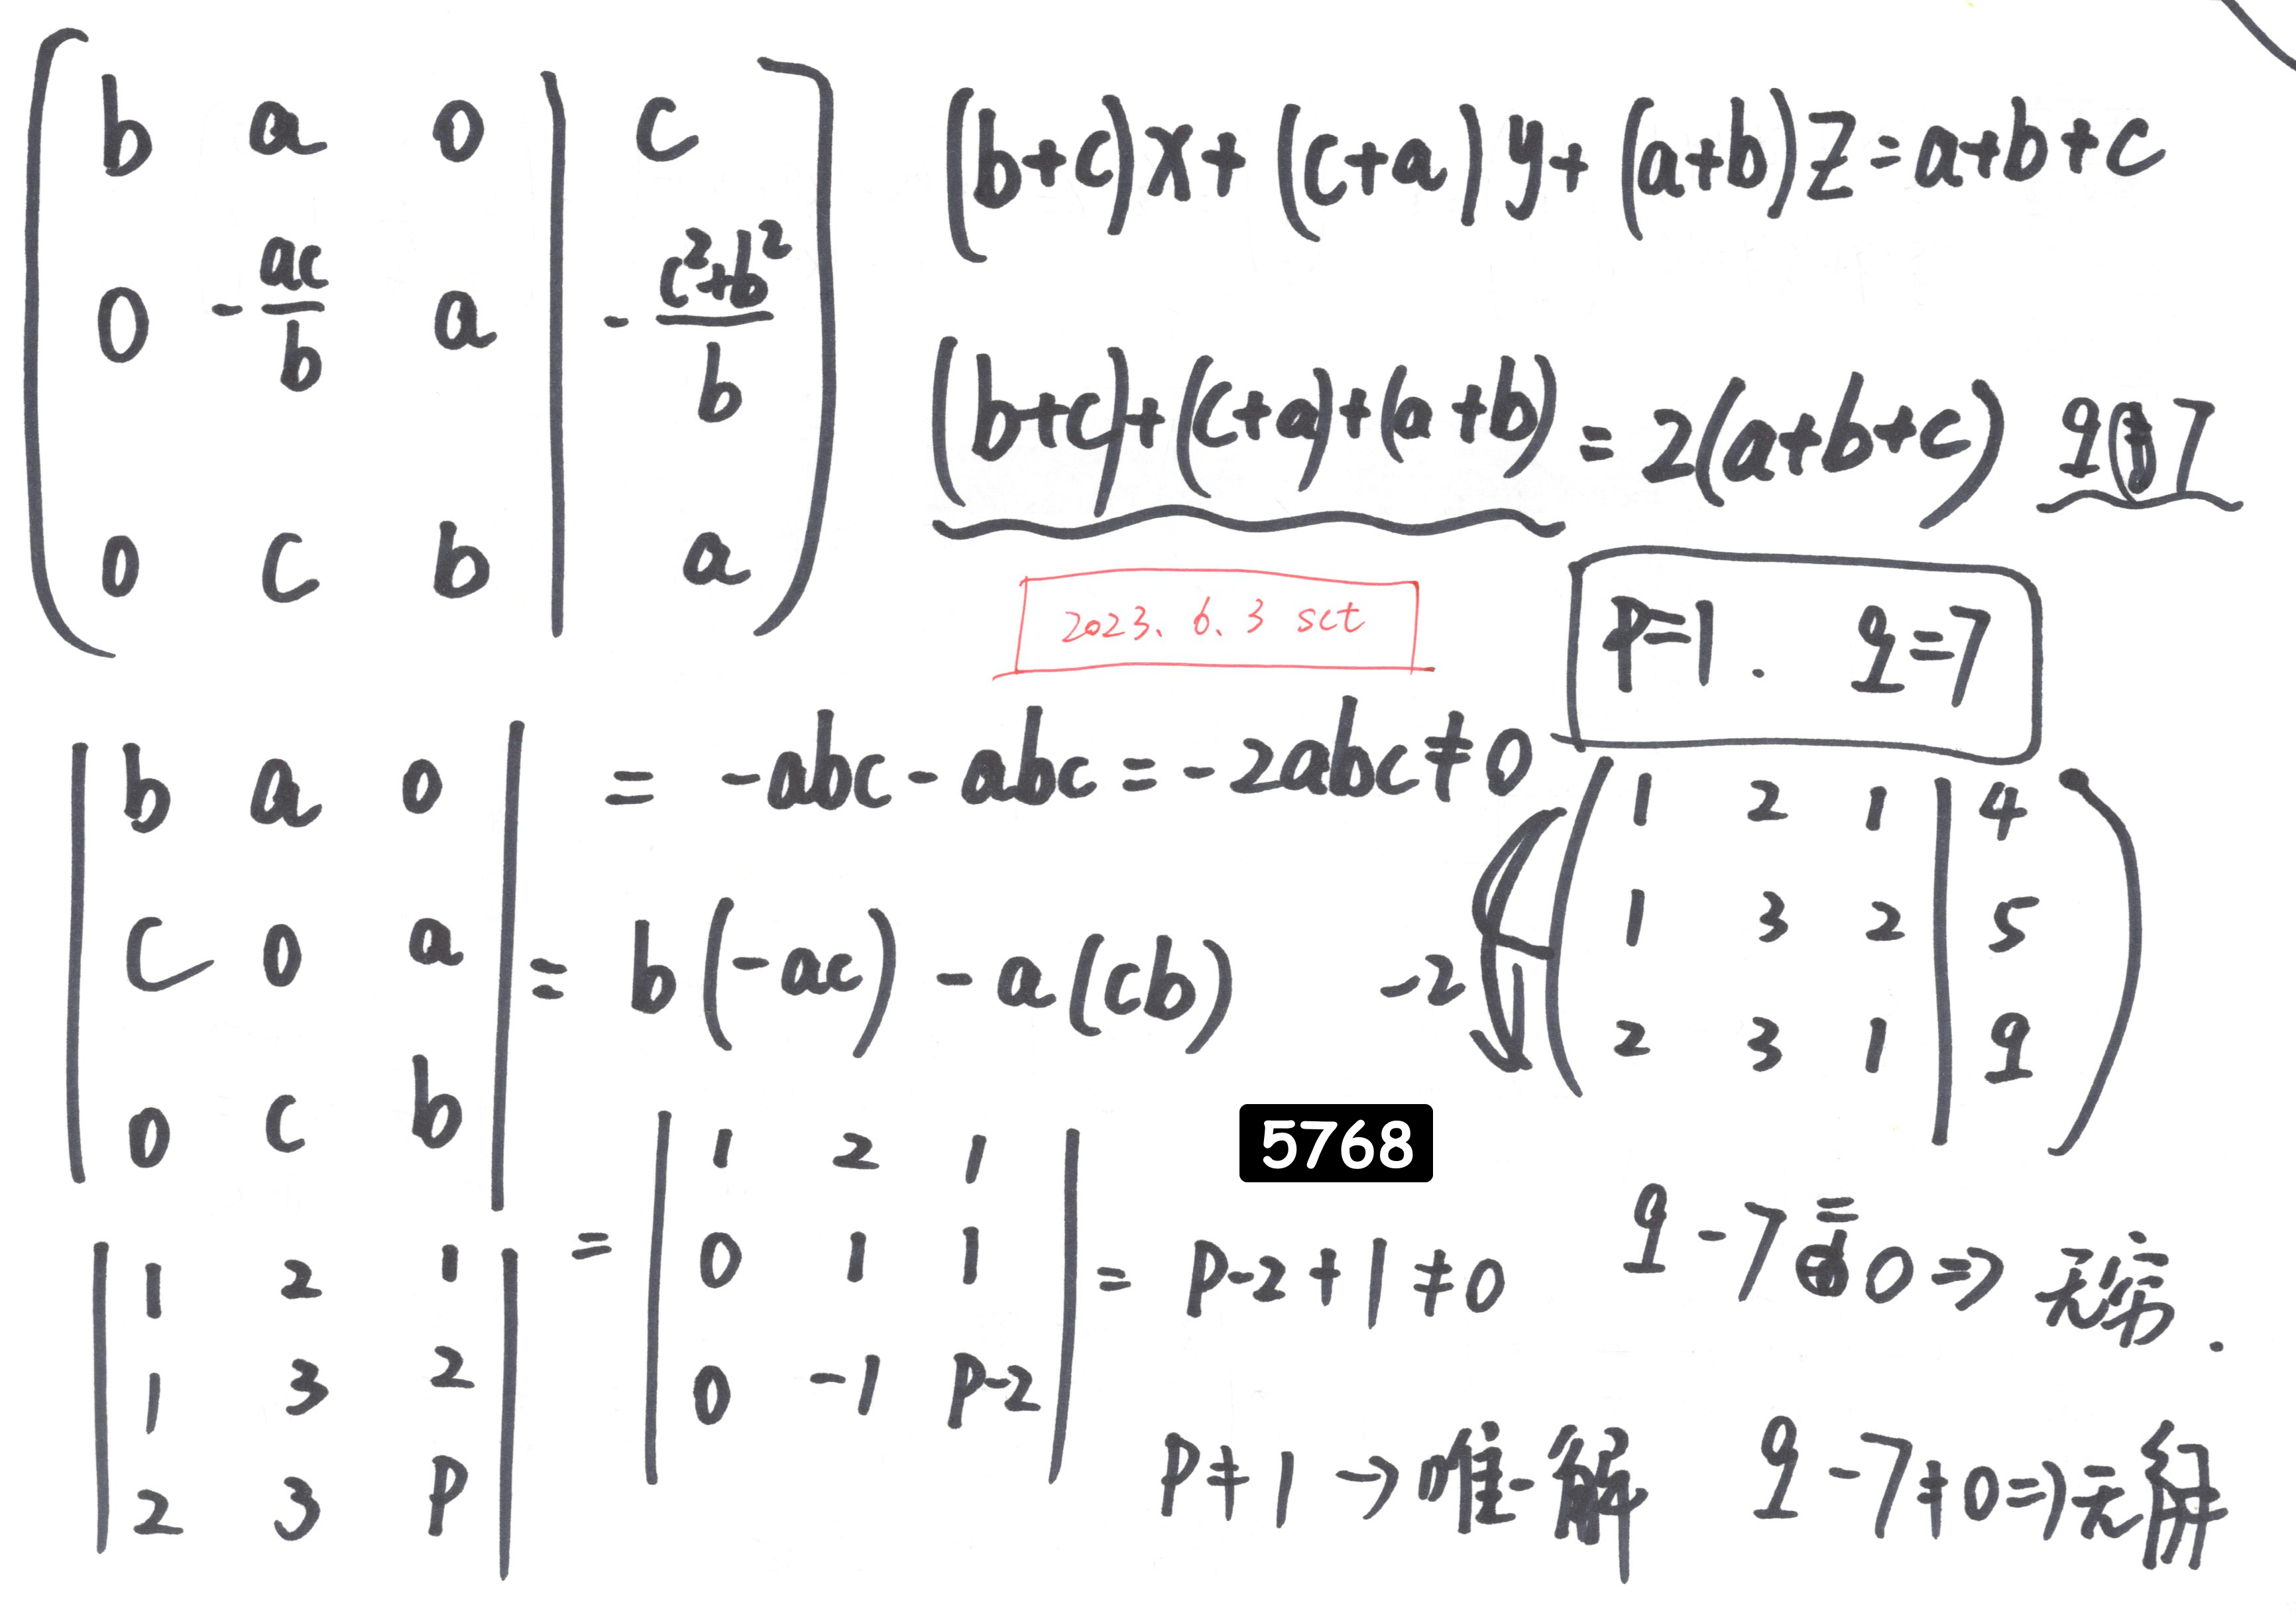 b a 0 | c
0 -ac/b a | -(c²+b²)/b
0 c b | a
(b+c)x+(c+a)y+(a+b)z=a+b+c
(b+c)+(c+a)+(a+b)=2(a+b+c)
2023. 6. 3 sct
P=1. q=7
b a 0
c 0 a
0 c b
= -abc-abc=-2abc≠0
= b(-ac)-a(cb)
-2
1 2 1 | 4
1 3 2 | 5
2 3 1 | q
5768
1 2 1
1 3 2
2 3 P
=
1 2 1
0 1 1
0 -1 P-2
= P-2+1≠0
P≠1→唯一解
q-7=0⇒无穷.
q-7≠0⇒无解